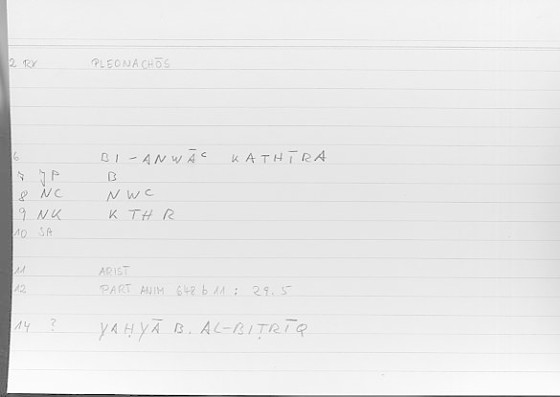 2 RX PLEONACHŌS
6 BI-ANWĀC KATHĪRA
7 JP B
8 NC NWC
9 NK KTHR
10 SA
11 ARIST
12 PART ANIM 648 b 11 : 29.5
14 ? YAḤYĀ B. AL-BIṬRĪQ